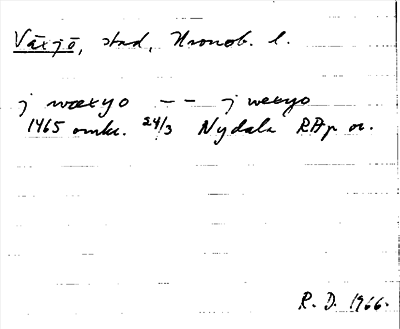 Växjö, stad, Kronob. l.
j wæxyo -- j wexyo
1465 omkr. 24/3 Nydala RAp or.
R. D. 1966.